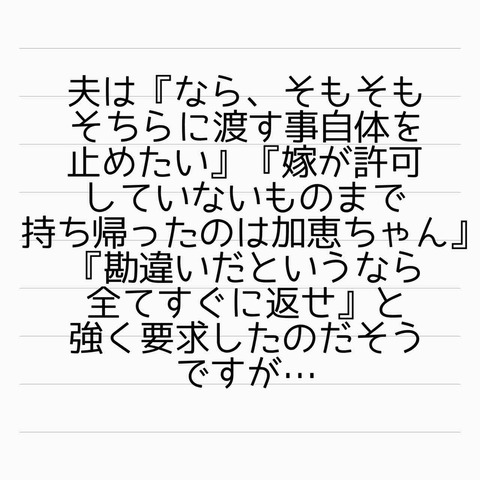 夫は『なら、そもそも
そちらに渡す事自体を
止めたい』『嫁が許可
していないものまで
持ち帰ったのは加恵ちゃん』
『勘違いだというなら
全てすぐに返せ』と
強く要求したのだそう
ですが…